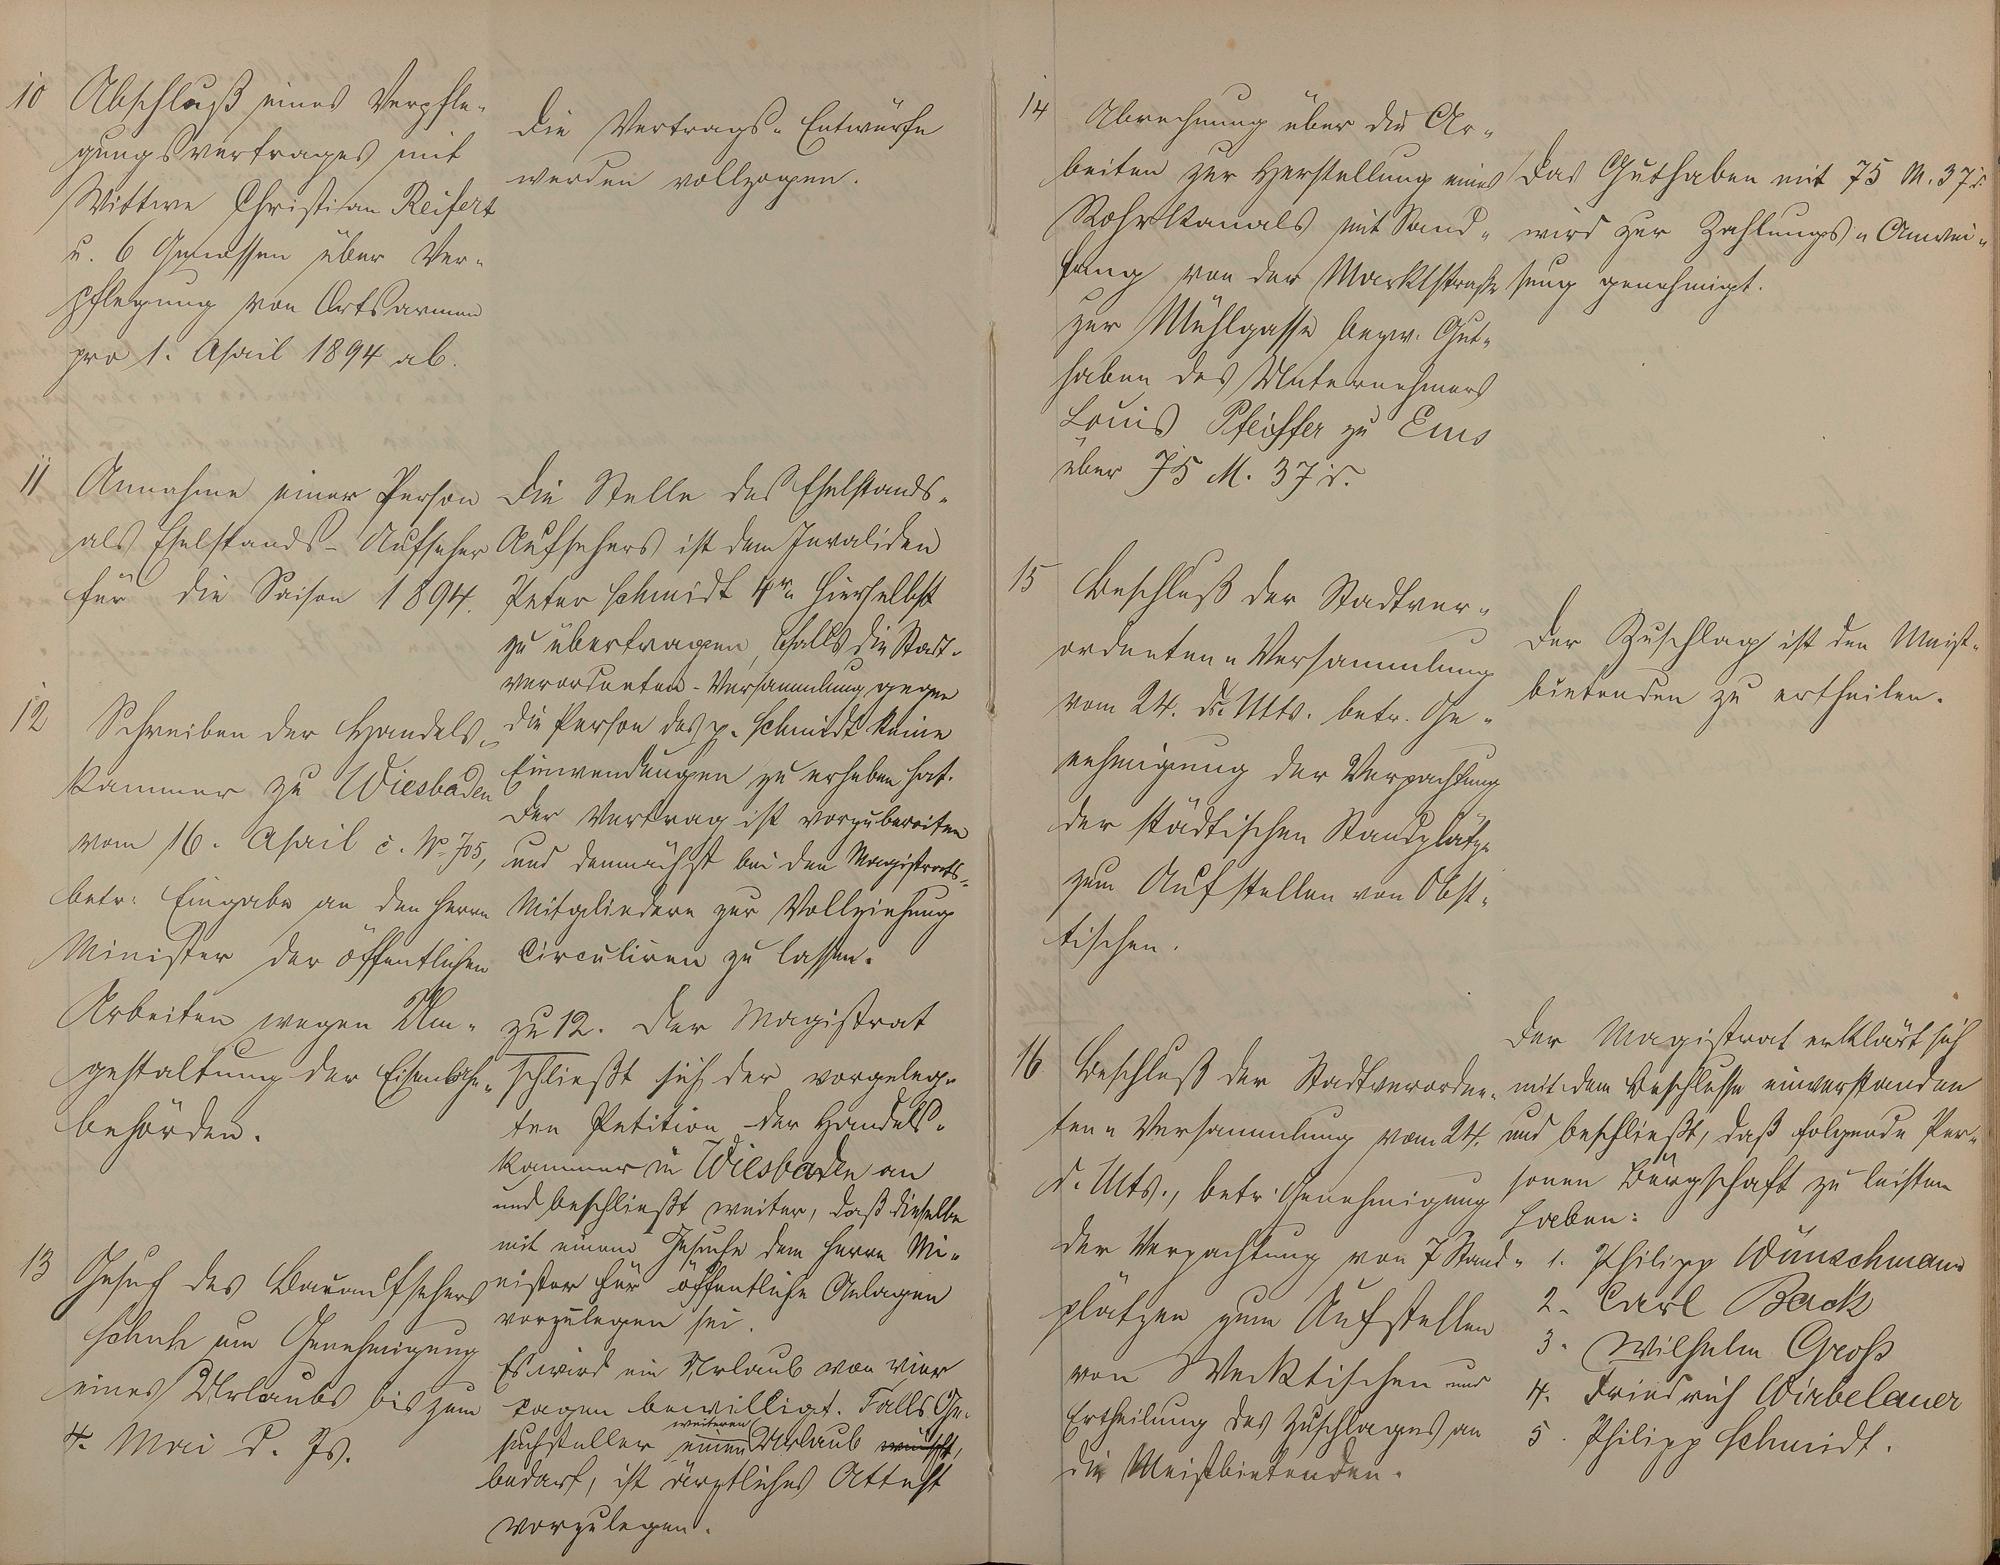 10 Abschluß eines Verpfle-
gungsvertrages mit
Wittwe Christian Reifert
u. 6 Genossen über Ver-
pflegung von Ortsarmen
pro 1. April 1894 ab.
Die Vertrags-Entwürfe
werden vollzogen.
11 Annahme einer Person
als Eselstands-Aufseher
für die Saison 1894.
Die Stelle des Eselstands-
Aufsehers ist dem Invaliden
Peter Schmidt 4r hierselbst
zu übertragen, falls die Stadt-
verordneten-Versammlung gegen
die Person des p. Schmidt keine
Einwendungen zu erheben hat.
Der Vertrag ist vorzubereiten
und demnächst bei den Magistrats-
Mitgliedern zur Vollziehung
circuliren zu lassen.
12 Schreiben der Handels-
kammer zu Wiesbaden
vom 16. April c. No 705,
betr. Eingabe an den Herrn
Minister der öffentlichen
Arbeiten wegen Um-
gestaltung der Eisenbahn-
behörden.
zu 12. Der Magistrat
schließt sich der vorgeleg-
ten Petition der Handels-
kammer in Wiesbaden an
und beschließt weiter, daß dieselbe
mit einem Gesuche dem Herrn Mi-
nister für öffentliche Anlagen
vorzulegen sei.
13 Gesuch des Bauaufsehers
um Genehmigung
eines Urlaubs bis zum
4. Mai d. Js.
Es wird ein Urlaub von vier
Tagen bewilligt. Falls Ge-
suchsteller einen weiteren Urlaub wünscht,
bedarf, ist ärztliches Attest
vorzulegen.
14 Abrechnung über die Ar-
beiten zur Herstellung eines
Rohrkanals mit Sand-
fang von der Marktstraße
zur Mühlgasse bezw. Gut-
haben des Unternehmers
Louis Pfeiffer zu Ems
über 75 M. 37 d.
Das Guthaben mit 75 M. 37 d.
wird zur Zahlungs-Anwei-
sung genehmigt.
15 Beschluß der Stadtver-
ordneten-Versammlung
vom 24. ds. Mts. betr. Ge-
nehmigung der Verpachtung
der städtischen Standplätze
zum Aufstellen von Obst-
tischen.
Der Zuschlag ist den Meist-
bietenden zu ertheilen.
16 Beschluß der Stadtverordne-
ten-Versammlung vom 24.
d. Mts., betr. Genehmigung
der Verpachtung von 7 Stand-
plätzen zum Aufstellen
von Wecktischen und
Ertheilung des Zuschlages an
die Meistbietenden.
Der Magistrat erklärt sich
mit dem Beschlusse einverstanden
und beschließt, daß folgende Per-
sonen Bürgschaft zu leisten
haben:
1. Philipp Wünschmann
2. Carl Back
3. Wilhelm Groß
4. Friedrich Wirbelauer
5. Philipp Schmidt.